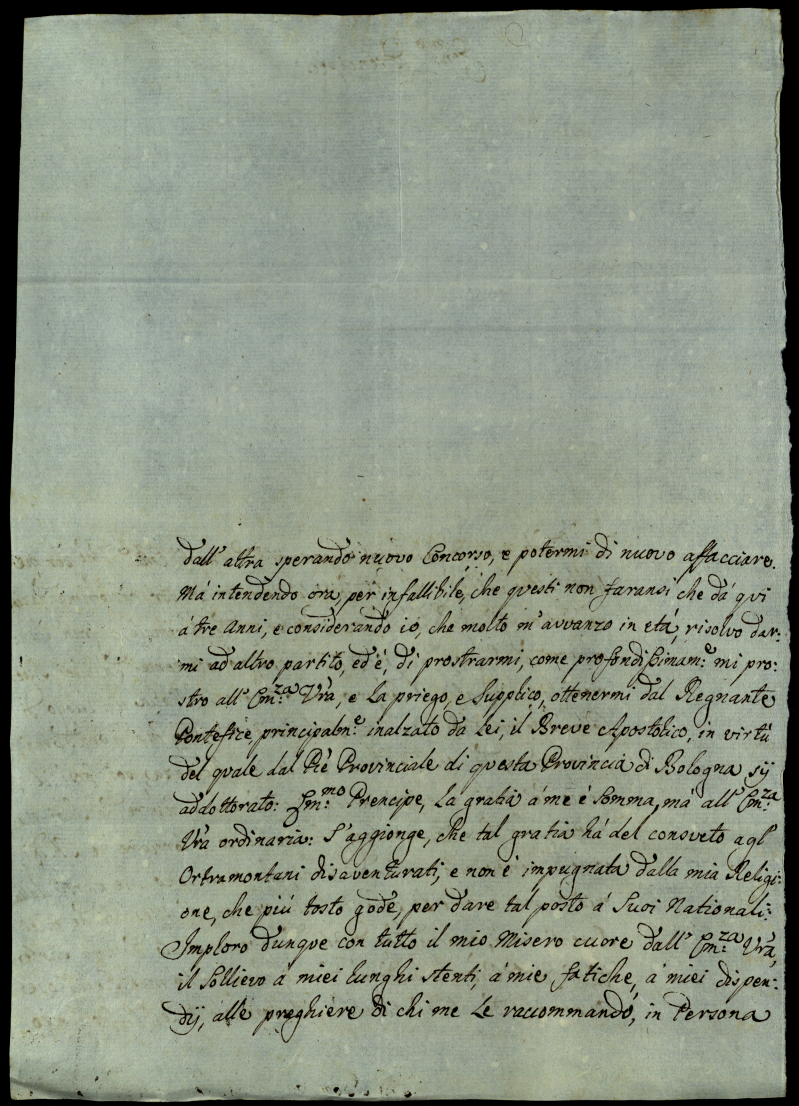 dall' altra sperando nuovo Concorso, e potermi di nuovo affacciare.
Má intendendo ora, per infallibile, che questi non faransi che dá qui
á tre Anni, e considerando io, che molto m'avvanzo in etá, risolvo dar-
mi ad altro partito, ed é, di prostrarmi, come profondissimam:e mi pro-
stro all' Em:za Vrá, e La priego, e Supplico, ottenermi dal Regnante
Pontefice, principalm:e inalzato da Lei, il Breve Apostolico, in virtú
del quale dal P'ré Provinciale di questa Provincia di Bologna sij
addottorato: Em:mo Prencipe, La gratia á me é Somma, má all' Em:za
Vrá ordinaria: S'aggionge, che tal gratia há del consueto agl'
Ortramontani disaventurati, e non é impugnata dalla mia Religi:
one, che piú tosto gode, per dare tal posto á Suoi Nationali:
Imploro dunque con tutto il mio Misero cuore dall' Em:za Vrá,
il Sollievo á miei lunghi stenti, á mie fatiche, á miei dispen:
dij, alle preghiere di chi me Le raccommandó, in Persona